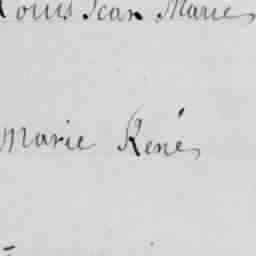 Louis Jean Marie
Marie René